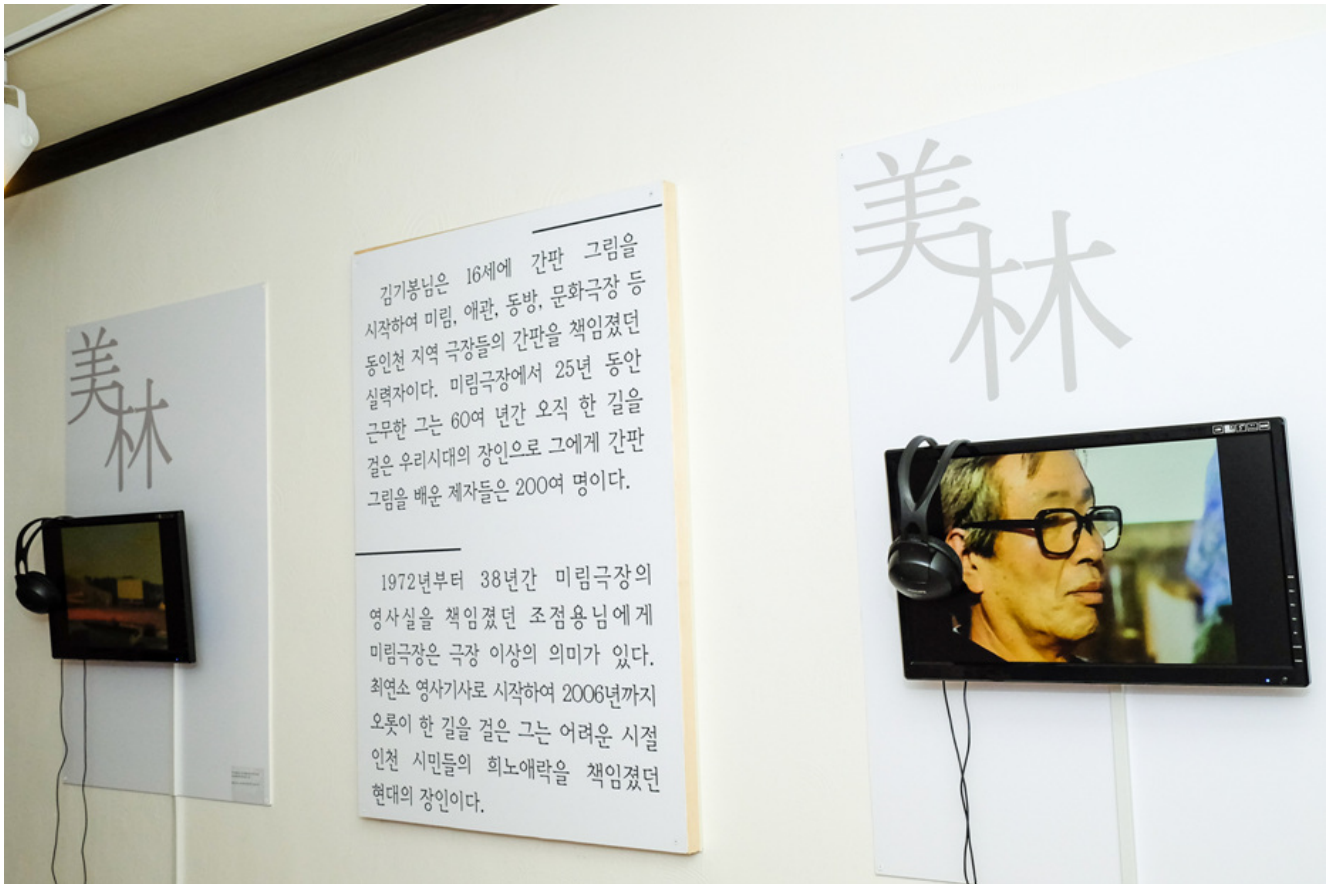 美
林
김기봉님은 16세에 간판 그림을
시작하여 미림, 애관, 동방, 문화극장 등
동인천 지역 극장들의 간판을 책임졌던
실력자이다. 미림극장에서 25년 동안
근무한 그는 60여 년간 오직 한 길을
걸은 우리시대의 장인으로 그에게 간판
그림을 배운 제자들은 200여 명이다.
1972년부터 38년간 미림극장의
영사실을 책임졌던 조점용님에게
미림극장은 극장 이상의 의미가 있다.
최연소 영사기사로 시작하여 2006년까지
오롯이 한 길을 걸은 그는 어려운 시절
인천 시민들의 희노애락을 책임졌던
현대의 장인이다.
美
林